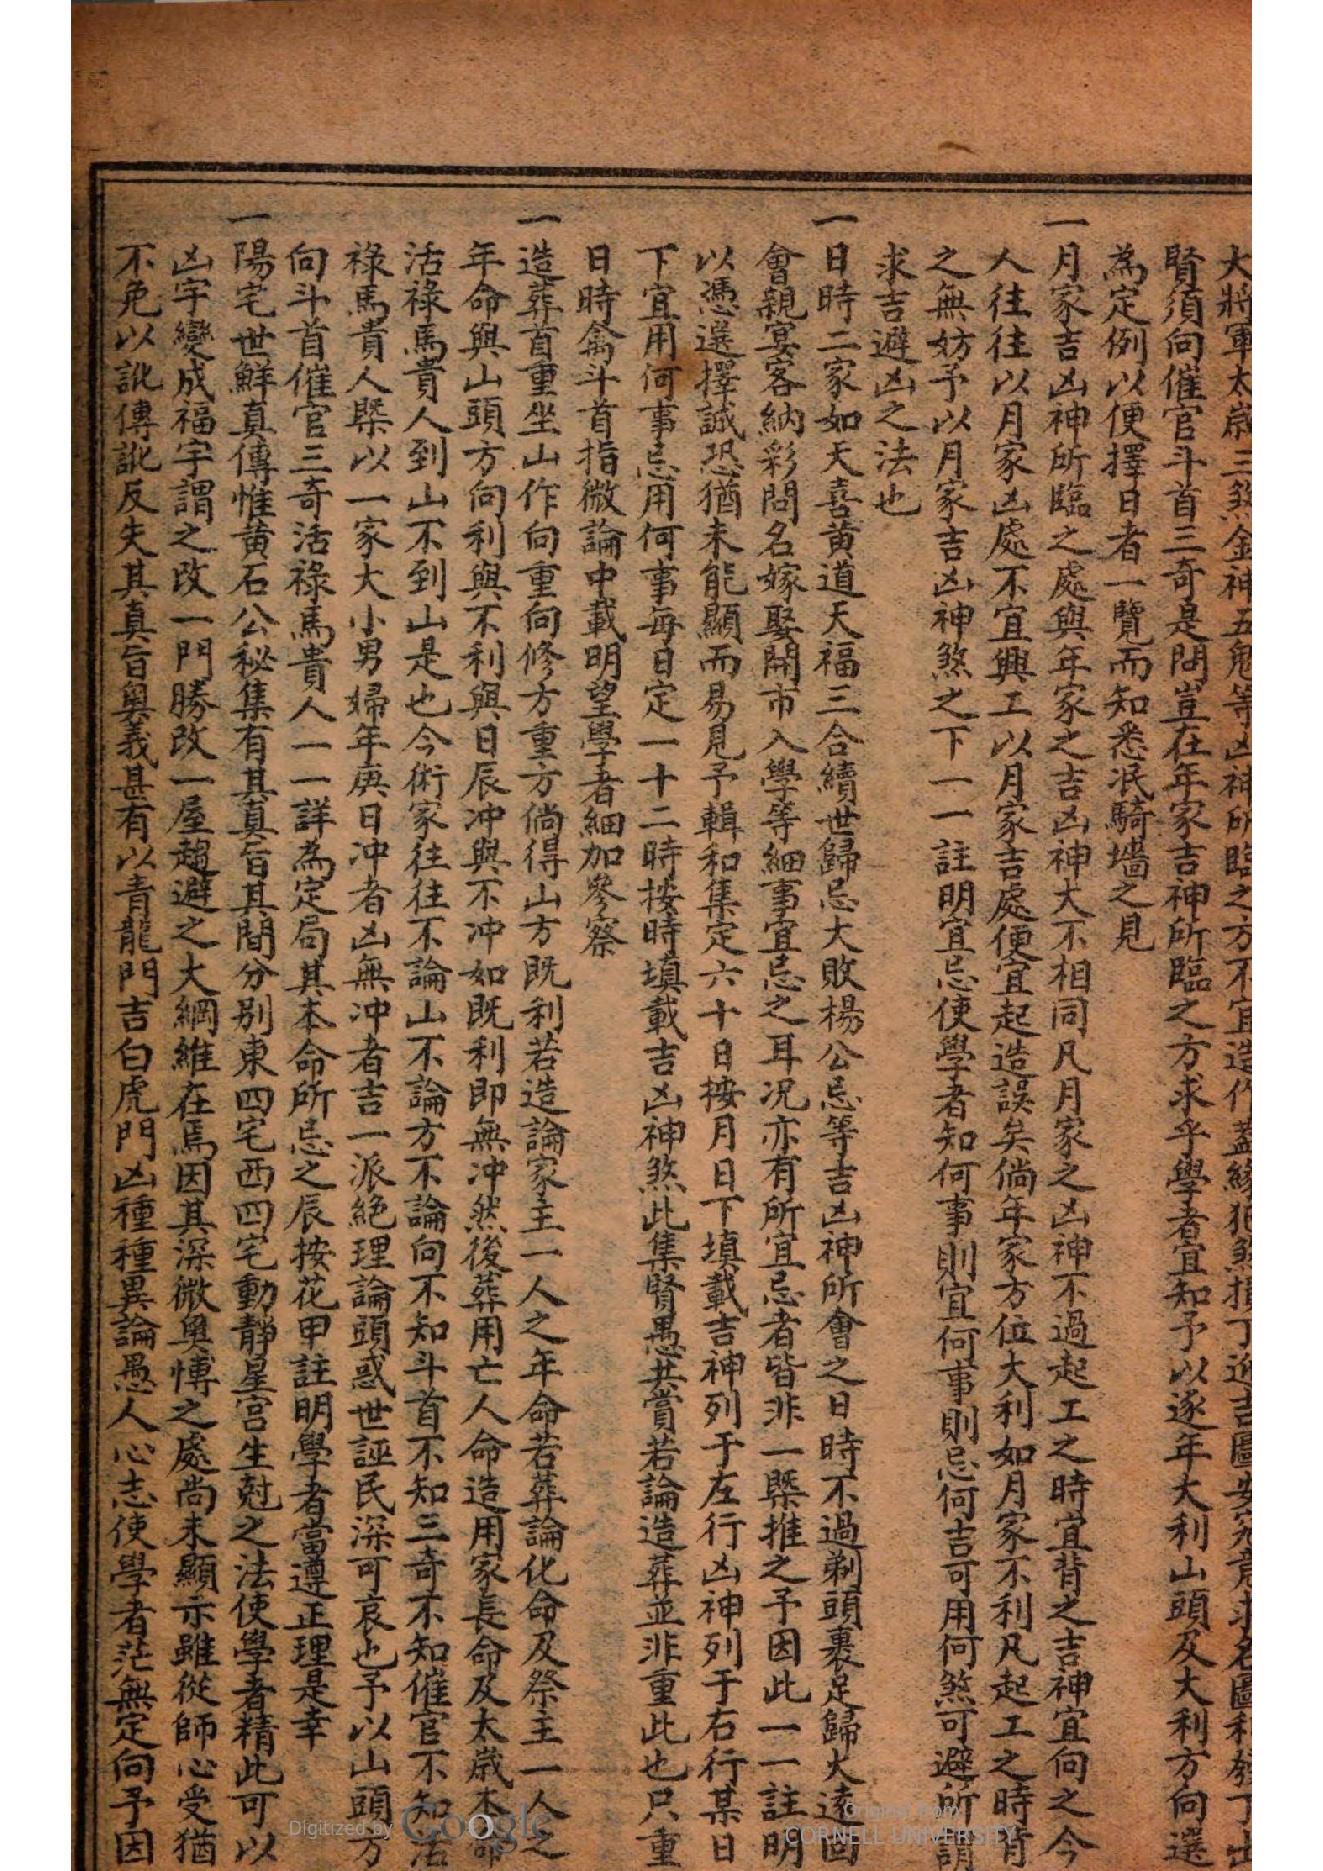 大將軍太歲三煞金神五鬼等凶神所臨之方不宜造作蓋緣犯煞損丁近吉圖安
賢須向催官斗首三奇是問豈在年家吉神所臨之方求乎學者宜知予以逐年大利山頭及大利方向選
為定例以便擇日者一覽而知悉泯騎墻之見
一月家吉凶神所臨之處與年家之吉凶神大不相同凡月家之凶神不過起工之時宜背之吉神宜向之今
人往往以月家凶處不宜興工以月家吉處便宜起造誤矣倘年家方位大利如月家不利凡起工之時背
之無妨予以月家吉凶神煞之下一一註明宜忌使學者知何事則宜何事則忌何吉可用何煞可避所謂
求吉避凶之法也
一日時二家如天喜黄道天福三合續世歸忌大敗楊公忌等吉凶神所會之日時不過剃頭裹足歸大遠回
會親宴客納彩問名嫁娶開市入學等細事宜忌之耳况亦有所宜忌者皆非一槩推之予因此一一註明
以憑選擇誠恐猶未能顯而易見予輯和集定六十日按月日下填載吉神列于左行凶神列于右行某日
下宜用何事忌用何事每日定一十二時按時填載吉凶神煞此集賢愚共賞若論造葬並非重此也只重
日時禽斗首指微論中載明望學者細加參察
一造葬首重坐山作向重向修方重方倘得山方既利若造論家主一人之年命若葬論化命及祭主一人之
年命與山頭方向利與不利與日辰冲與不冲如既利即無冲然後葬用亡人命造用家長命及太歲本命
活祿馬貴人到山不到山是也今術家往往不論山不論方不論向不知斗首不知三奇不知催官不知活
祿馬貴人槩以一家大小男婦年庚日冲者凶無冲者吉一派絶理論頭惑世誣民深可哀也予以山頭方
向斗首催官三奇活祿馬貴人一一詳為定局其本命所忌之辰按花甲註明學者當遵正理是幸
一陽宅世鮮真傳惟黄石公秘集有其真旨其間分别東四宅西四宅動靜星宮生尅之法使學者精此可以
凶宇變成福宇謂之改一門勝改一屋趨避之大綱維在焉因其深微奧愽之處尚未顯示雖從師心受猶
不免以訛傳訛反失其真旨奧義甚有以青龍門吉白虎門凶種種異論愚人心志使學者茫無定向予因
Digitized by Google
Original from
CORNELL UNIVERSITY